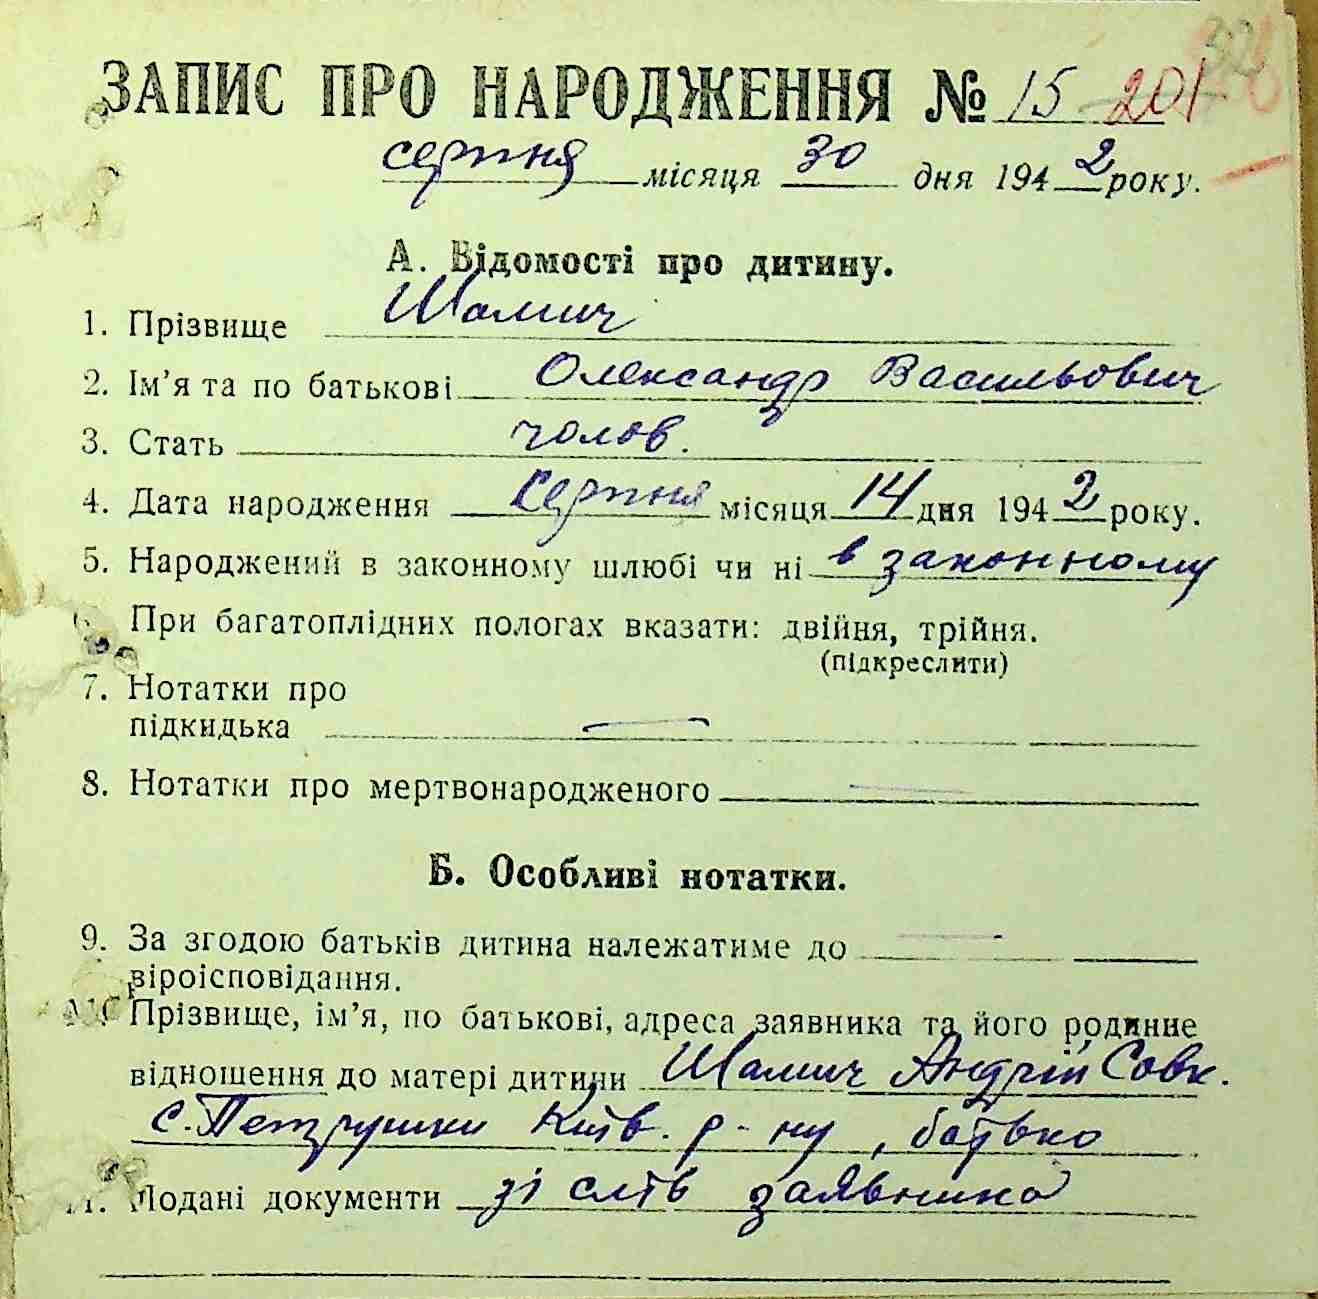 ЗАПИС ПРО НАРОДЖЕННЯ № 15 201
серпня місяця 30 дня 1942 року.
А. Відомості про дитину.
1. Прізвище Шамич
2. Ім'я та по батькові Олександр Васильович
3. Стать чолов.
4. Дата народження Серпня місяця 14 дня 1942 року.
5. Народжений в законному шлюбі чи ні в законному
6. При багатоплідних пологах вказати: двійня, трійня.
(підкреслити)
7. Нотатки про
підкидька —
8. Нотатки про мертвонародженого —
Б. Особливі нотатки.
9. За згодою батьків дитина належатиме до —
віроісповідання.
Прізвище, ім'я, по батькові, адреса заявника та його родинне
відношення до матері дитини Шамич Андрій Совк.
с. Петрушки Київ. р-ну, батько
11. Подані документи зі слів заявника